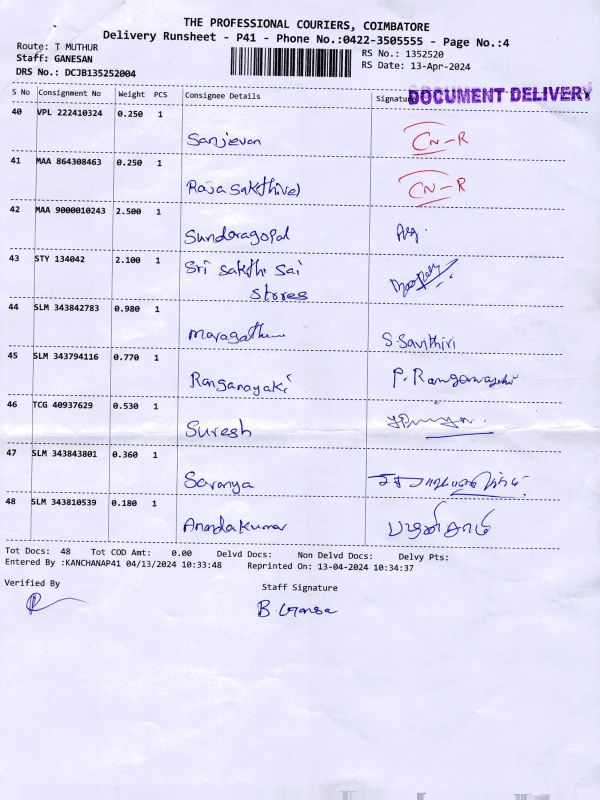 THE PROFESSIONAL COURIERS, COIMBATORE
Delivery Runsheet - P41 - Phone No.:0422-3505555 - Page No.:4
Route: T MUTHUR
RS No.: 1352520
Staff: GANESAN
RS Date: 13-Apr-2024
DRS No.: DCJB135252004
S No Consignment No Weight PCS Consignee Details Signature
DOCUMENT DELIVERY
40 VPL 222410324 0.250 1
Sanjevan CN-R
41 MAA 864308463 0.250 1
Rajasakthivel CN-R
42 MAA 9000010243 2.500 1
Sundaragopal
43 STY 134042 2.100 1 Sri Sakthi Sai
Stores
44 SLM 343842783 0.980 1
S Savithiri
45 SLM 343794116 0.770 1
Ranganayaki P. Ranganayaki
46 TCG 40937629 0.530 1
Suresh
47 SLM 343843801 0.360 1
Saranya
48 SLM 343810539 0.180 1
Anandakumar
Tot Docs: 48 Tot COD Amt: 0.00 Delvd Docs: Non Delvd Docs: Delvy Pts:
Entered By :KANCHANAP41 04/13/2024 10:33:48 Reprinted On: 13-04-2024 10:34:37
Verified By
Staff Signature